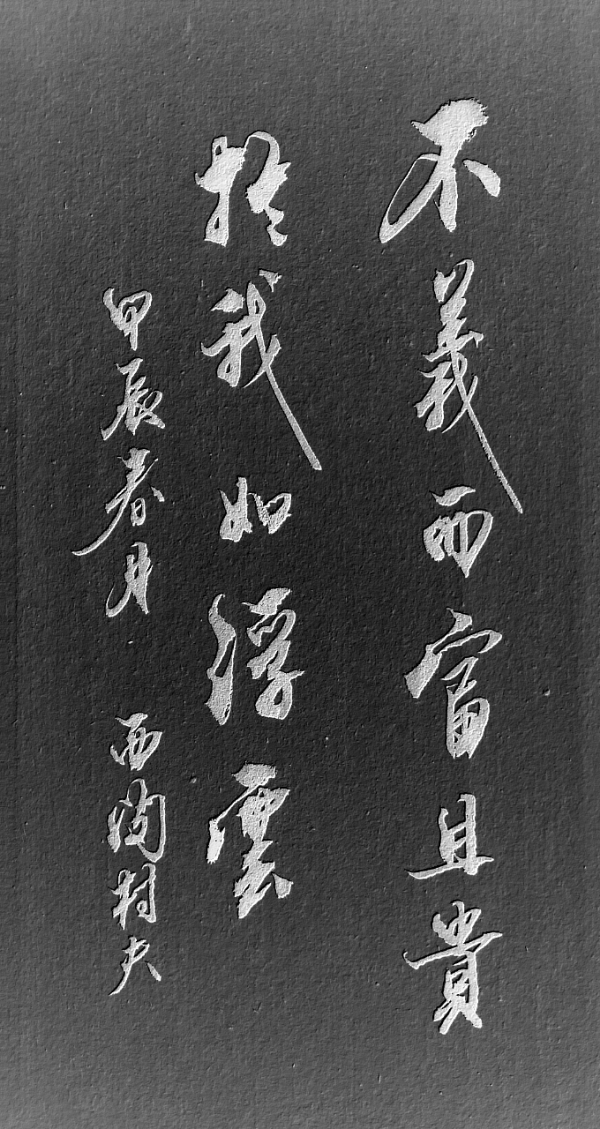 不義而富且貴
於我如浮雲
甲辰春月 西閣村夫